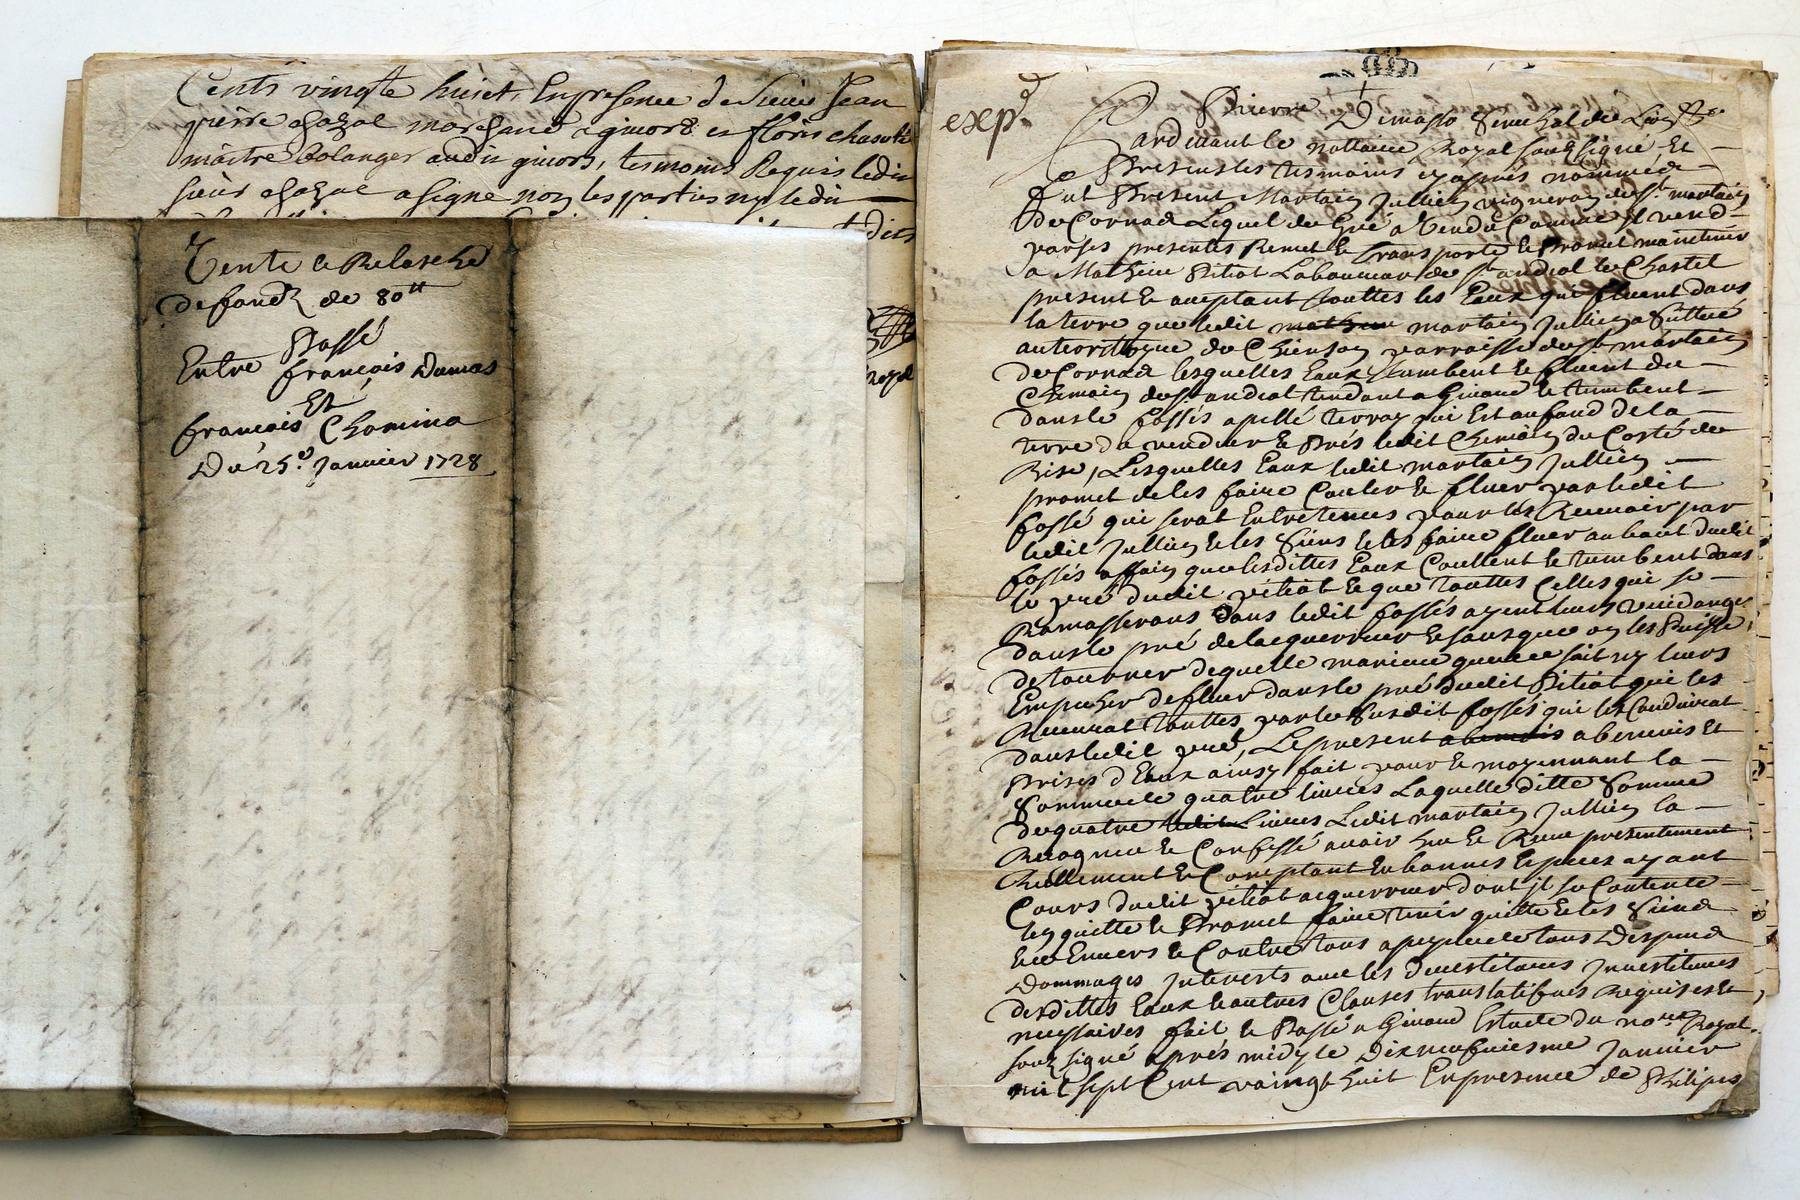 Cents vingte huict, En presence de Sieur Jean
pierre chazal marchand a givors et floris
maitre bolanger audit givors, tesmoins Requis ledit
sieur chazal a signe non les parties ny ledit
dits
royal
Vente et Relasche
de fondz de 80ᵗᵗ
Passé
Entre françois Dumas
Et
françois Chomina
Du 25.ᵉ Janvier 1728
exp.ᵉ
Pierre Dimasso Senechal de Lion
Pardevant le nottaire Royal souzsigné Et
Presents les tesmoins cy apres nommés
fut Present Martain Jullien vigneron de Sᵗ martain
de Cornas Lequel de Gré a Vendu Comme Jl vend
par ses presentes Remet et transporte et Promet maintenir
a Mathieu Pitiot Laboureur de Sᵗ andial le Chastel
present et aceptant touttes les Eaux qui fluent dans
la terre que ledit mathieu martain Jullien a Sittué
au territoire de Chienson parroisse de Sᵗ martain
de Cornas lesquelles Eaux tumbent et fluent du
Chemain de Sᵗ andial tendant a Givord et tumbent
dans le fossés apellé terray qui Est au fond de la
terre du vendeur et Prés ledit Chemain du Costé de
Bise, Lesquelles Eaux ledit martain Jullien
promet de les faire Couler et fluer par ledit
fossé qui serat Entretenus pour les Recevoir par
ledit Jullien et les Siens et les faire fluer au haut dudit
fossés affain que lesdittes Eaux Coullent et tumbent dans
le pré dudit pitiot et que touttes Celles qui se
Ramasserons dans ledit fossés ayent leurs vuidange
dans le pré de lacquerreur et sans que on les Puisse
detourner de quelle maniere que ce soit ny leurs
Empecher de fluer dans le pré dudit Pitiot qui les
Recevrat touttes par le Susdit fossés qui les Conduirat
dans ledit pré, Le present abenevis abenevis Et
Prises d'Eaux ainsy fait pour et moyennant la
Somme de quatre livres Laquelle ditte Somme
de quatre ledit Livres Ledit martain Jullien la
Recognu et Confessé avoir heu et Receu presentement
Reellement et Comptant En bonnes Especes ayant
Cours dudit pitiot acquerreur dont jl se Contente
len quitte et Promet faire tenir quitte et les Siens
Envers et Contre tous a peyne de tous Despens
Dommages Interests avec les Devestitures Jnvestitures
desdittes Eaux et autres Clauses translatifves Requises et
necessaires fait et Passé a Givord Estude du noʳᵉ Royal
souz signé aprés midy le Dixneufviesme Janvier
mil sept Cent vaingt huit En presence de Philipes